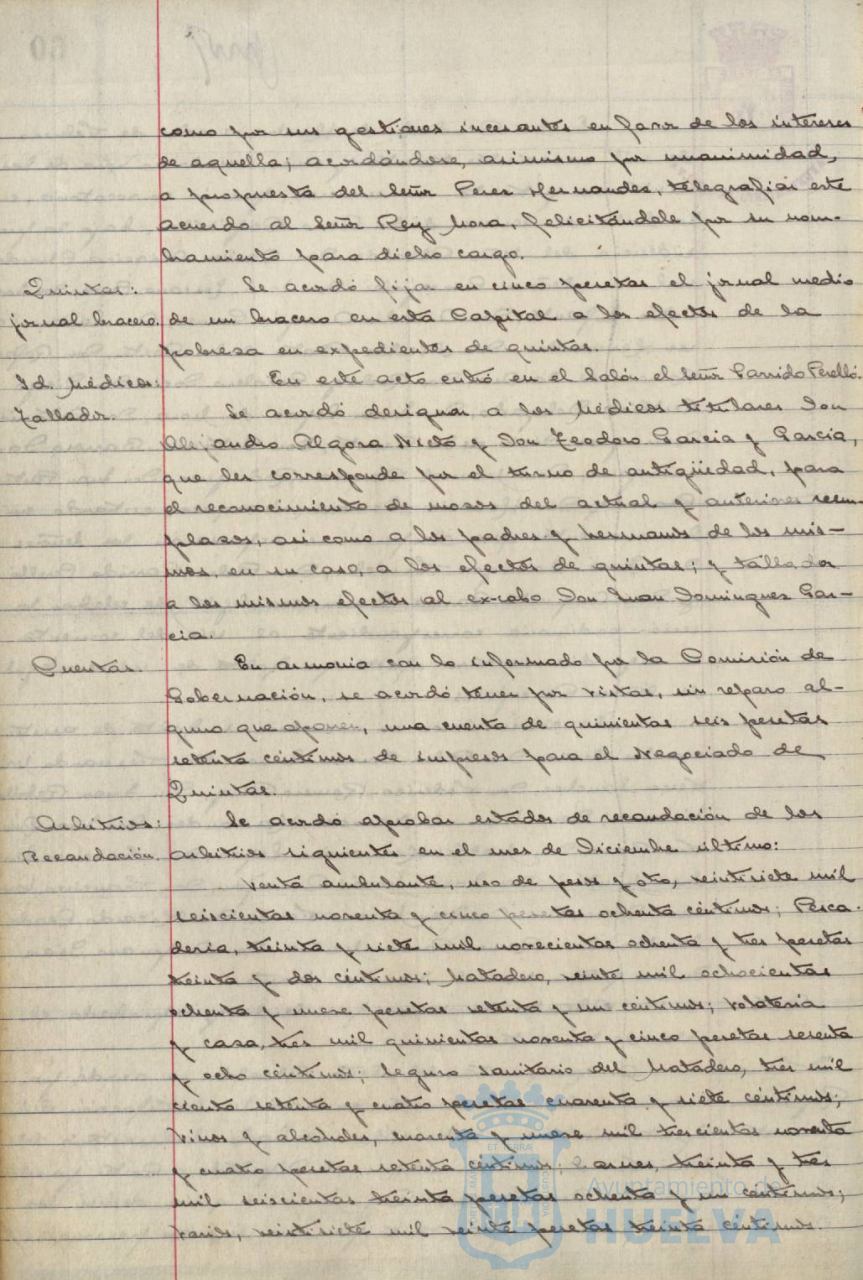 como por sus gestiones incesantes en favor de los intereses
de aquella; acordándose, asimismo por unanimidad,
a propuesta del Señor Perez Hernandez, telegrafiar este
acuerdo al Señor Rey Mora, felicitándole por su nom-
bramiento para dicho cargo.
Quintas:
jornal bracero.
Se acordó fijar en cinco pesetas el jornal medio
de un bracero en esta Capital a los efectos de la
pobreza en expedientes de quintas.
Id. Médicos:
Tallador.
En este acto entró en el Salón el Señor Garrido Perelló.
Se acordó designar a los Médicos titulares Don
Alejandro Algora Nieto y Don Teodoro Garcia y García,
que les corresponde por el turno de antigüedad, para
el reconocimiento de mozos del actual y anteriores reem-
plazos, asi como a los padres y hermanos de los mis-
mos, en su caso, a los efectos de quintas; y tallador
a los mismos efectos al ex-cabo Don Juan Dominguez Gar-
cia.
Cuentas.
En armonia con lo informado por la Comisión de
Gobernación, se acordó tener por vistas, sin reparo al-
guno que oponer, una cuenta de quinientas seis pesetas
setenta céntimos de impresos para el Negociado de
Quintas.
Arbitrios:
Recaudación.
Se acordó aprobar estados de recaudación de los
arbitrios siguientes en el mes de Diciembre último:
Venta ambulante, uso de pesos y otro, veintisiete mil
seiscientas noventa y cinco pesetas ochenta céntimos; Pesca-
deria, treinta y siete mil novecientas ochenta y tres pesetas
treinta y dos céntimos; Matadero, veinte mil ochocientas
ochenta y nueve pesetas setenta y un céntimos; Volatería
y caza, tres mil quinientas noventa y cinco pesetas sesenta
y ocho céntimos; Seguro sanitario del Matadero, tres mil
ciento setenta y cuatro pesetas cuarenta y siete céntimos;
Vinos y alcoholes, cuarenta y nueve mil trescientas noventa
y cuatro pesetas setenta céntimos; Carnes, treinta y tres
mil seiscientas treinta pesetas ochenta y un céntimos;
Varios, veintisiete mil veinte pesetas treinta céntimos.
Ayuntamiento de
HUELVA